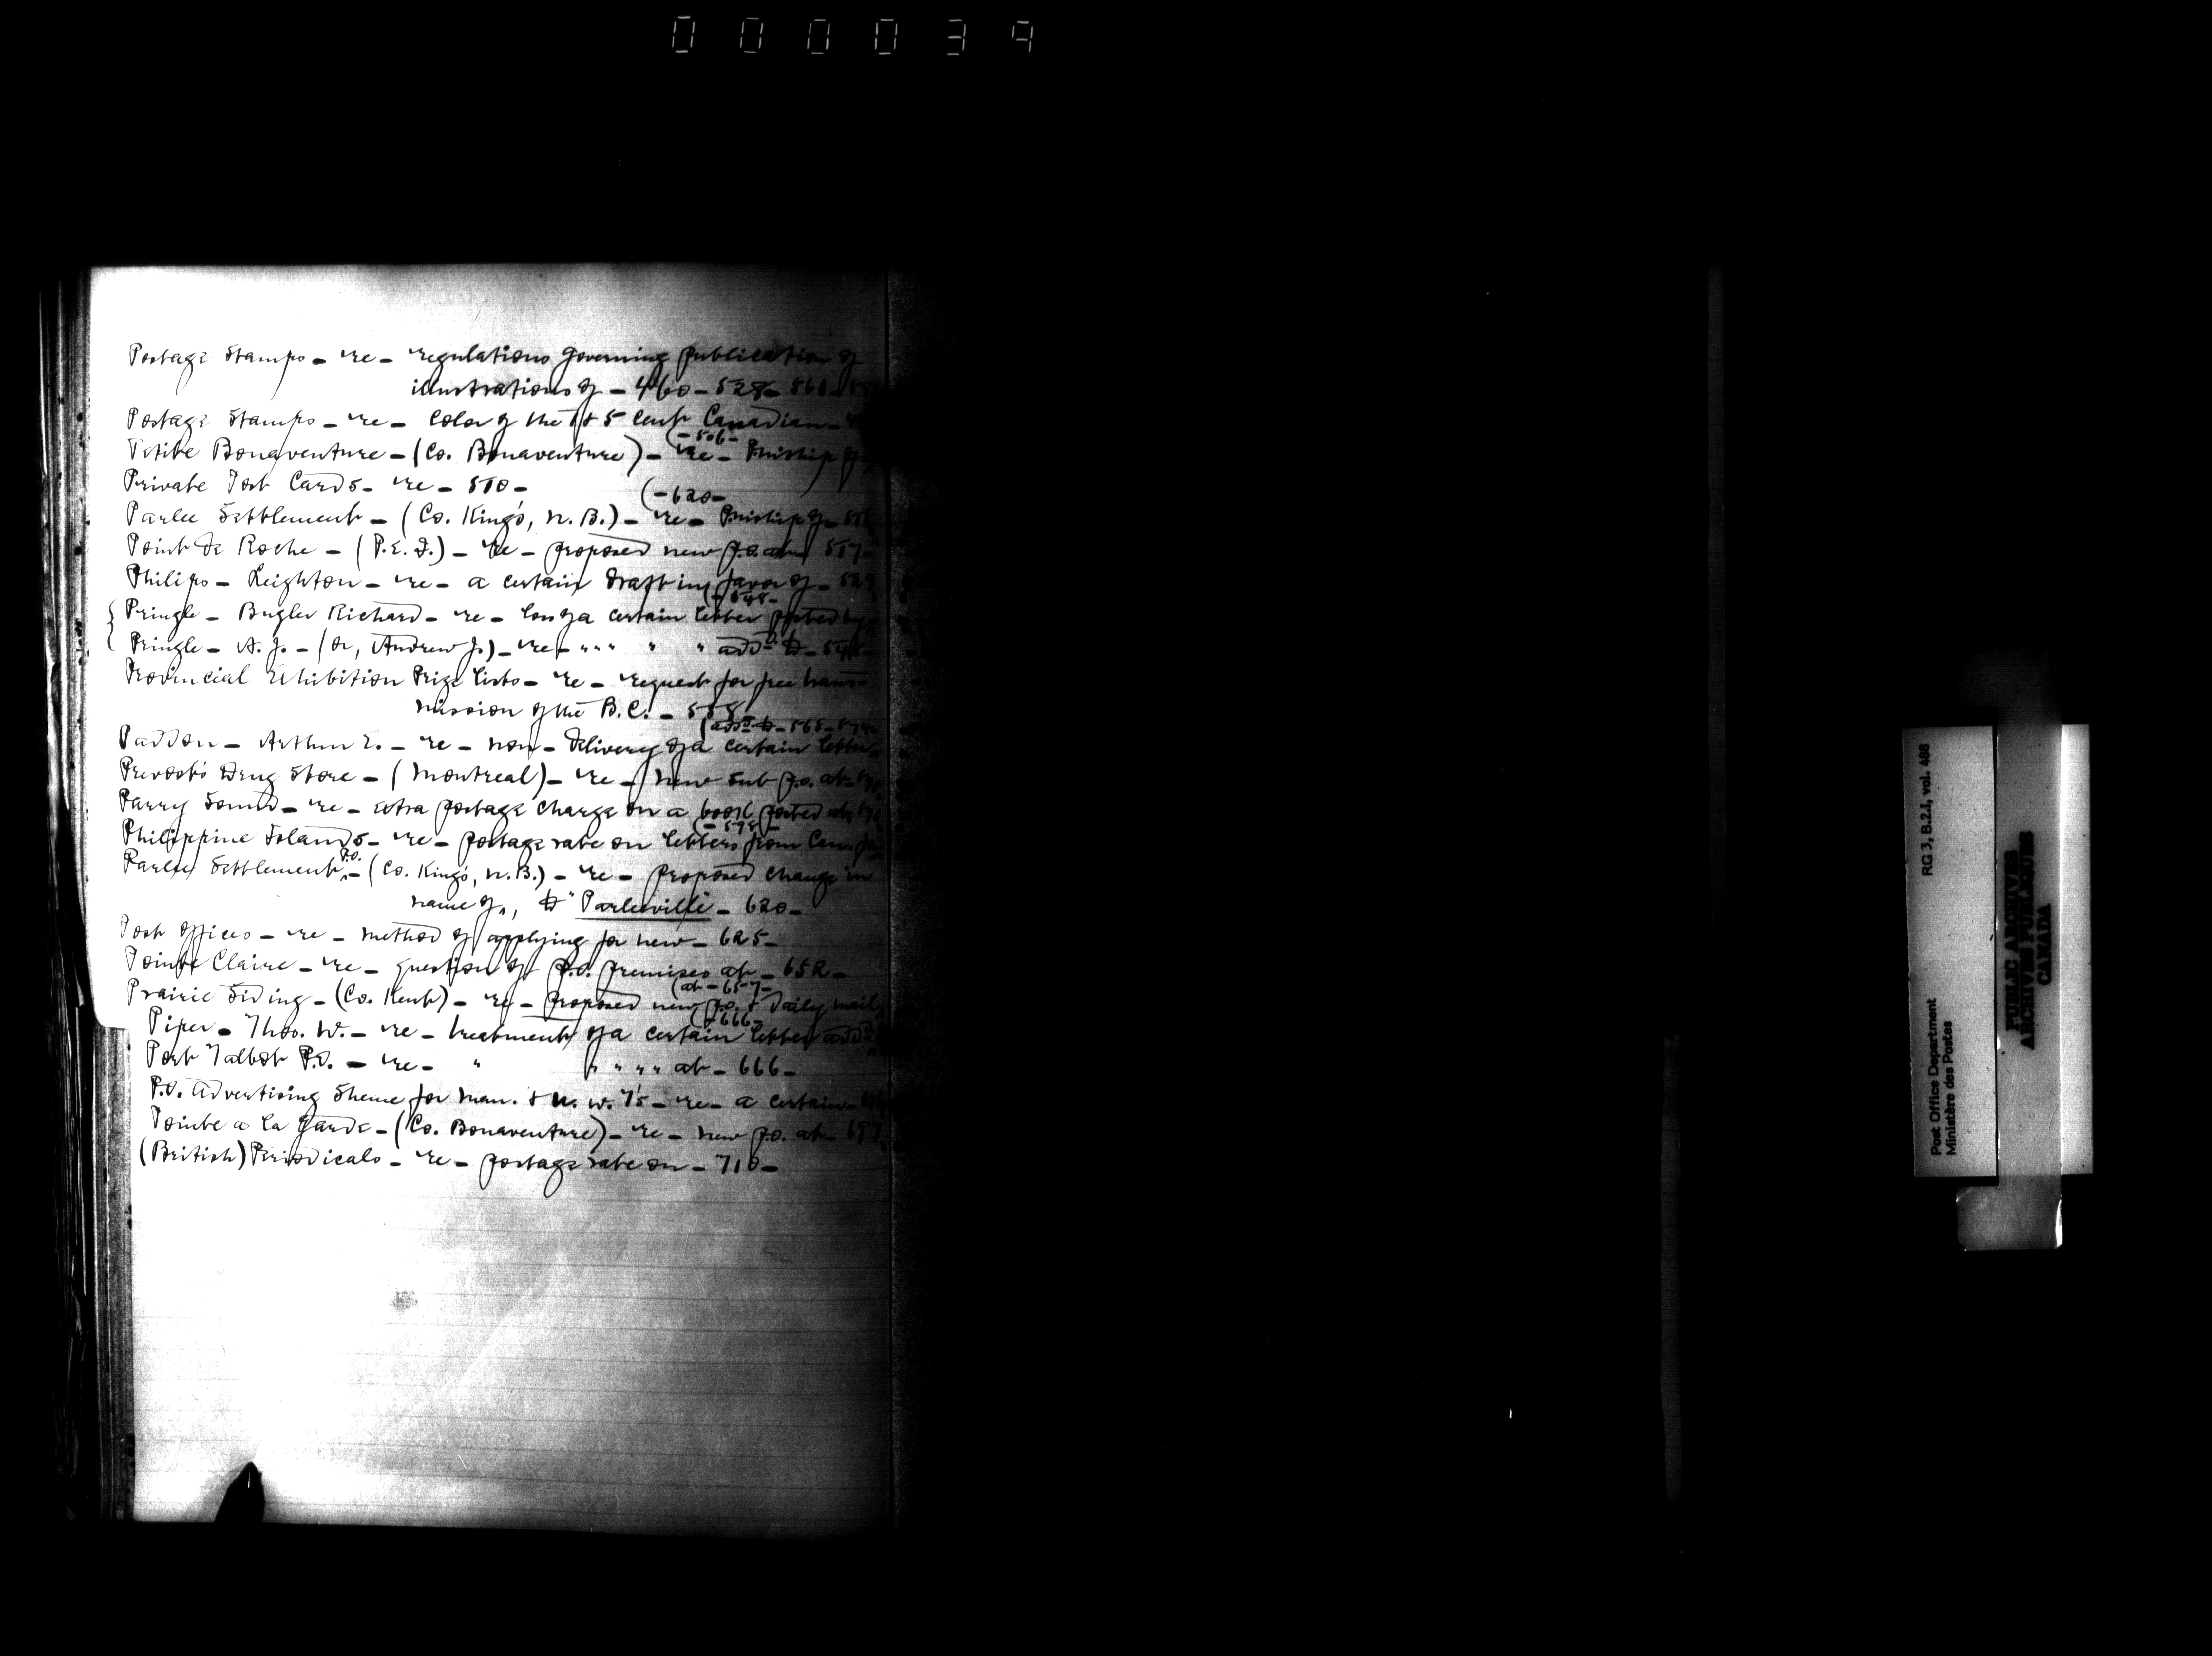 000039
Postage Stamps - re - regulations governing publication of
illustrations of - 460 - 528 - 561 -
Postage Stamps - re - color of the 1 & 5 cent Canadian -
(- 506 -
Petite Bonaventure - (Co. Bonaventure) - re - P.mstship of
Private Post Cards - re - 510 -
(- 620 -
Parlee Settlement - (Co. King's, N.B.) - re - P.mstship of -
Point De Roche - (P.E.I.) - re - proposed new p.o. at - 517 -
Philips - Leighton - re - a certain draft in favor of - 529
(- 548 -
Pringle - Bugler Richard - re - loss of a certain letter posted by
Pringle - A. J. - (or, Andrew J.) - re - " " " " " add^d to - 548 -
Provincial Exhibition Prize Lists - re - request for free trans-
mission of the B.C. - 558 -
(add^d to - 565 - 574 -
Paddon - Arthur E. - re - non-delivery of a certain letter
Prevost's Drug Store - (Montreal) - re - new sub p.o. at -
Parry Sound - re - extra postage charge on a book posted at
(- 598 -
Philippine Islands - re - postage rate on letters from Can. for
Parlee Settlement P.O. - (Co. King's, N.B.) - re - proposed change in
name of, to "Parleeville - 620 -
Post Offices - re - method of applying for new - 625 -
Pointe Claire - re - question of p.o. premises at - 652 -
(at - 657 -
Prairie Siding - (Co. Kent) - re - proposed new p.o. & daily mail
(- 666 -
Piper - Thos. W. - re - treatment of a certain letter add^d
Port Talbot P.O. - re - " " " " " at - 666 -
P.O. Advertising Sheme for Man. & N.W. T's - re - a certain -
Pointe a la Garde - (Co. Bonaventure) - re - new p.o. at - 697
(British) Periodicals - re - postage rate on - 710 -
RG 3, B.2.I, vol. 488
Post Office Department
Ministère des Postes
PUBLIC ARCHIVES
ARCHIVES PUBLIQUES
CANADA